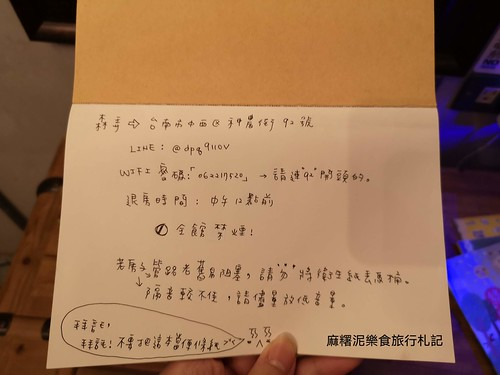 林哥 ⇨ 台南市中西區 神農街 92 號
LINE: @dpq9110v
WIFI 密碼:「062217520」→ 請連"92"開頭的。
退房時間: 中午 12 點前
全館禁煙!
老房子管路老舊易阻塞, 請"勿"將衛生紙丟馬桶。
↓隔音較不佳, 請儘量放低音量。
拜託!不要把這本當便條紙
麻糬泥樂食旅行札記